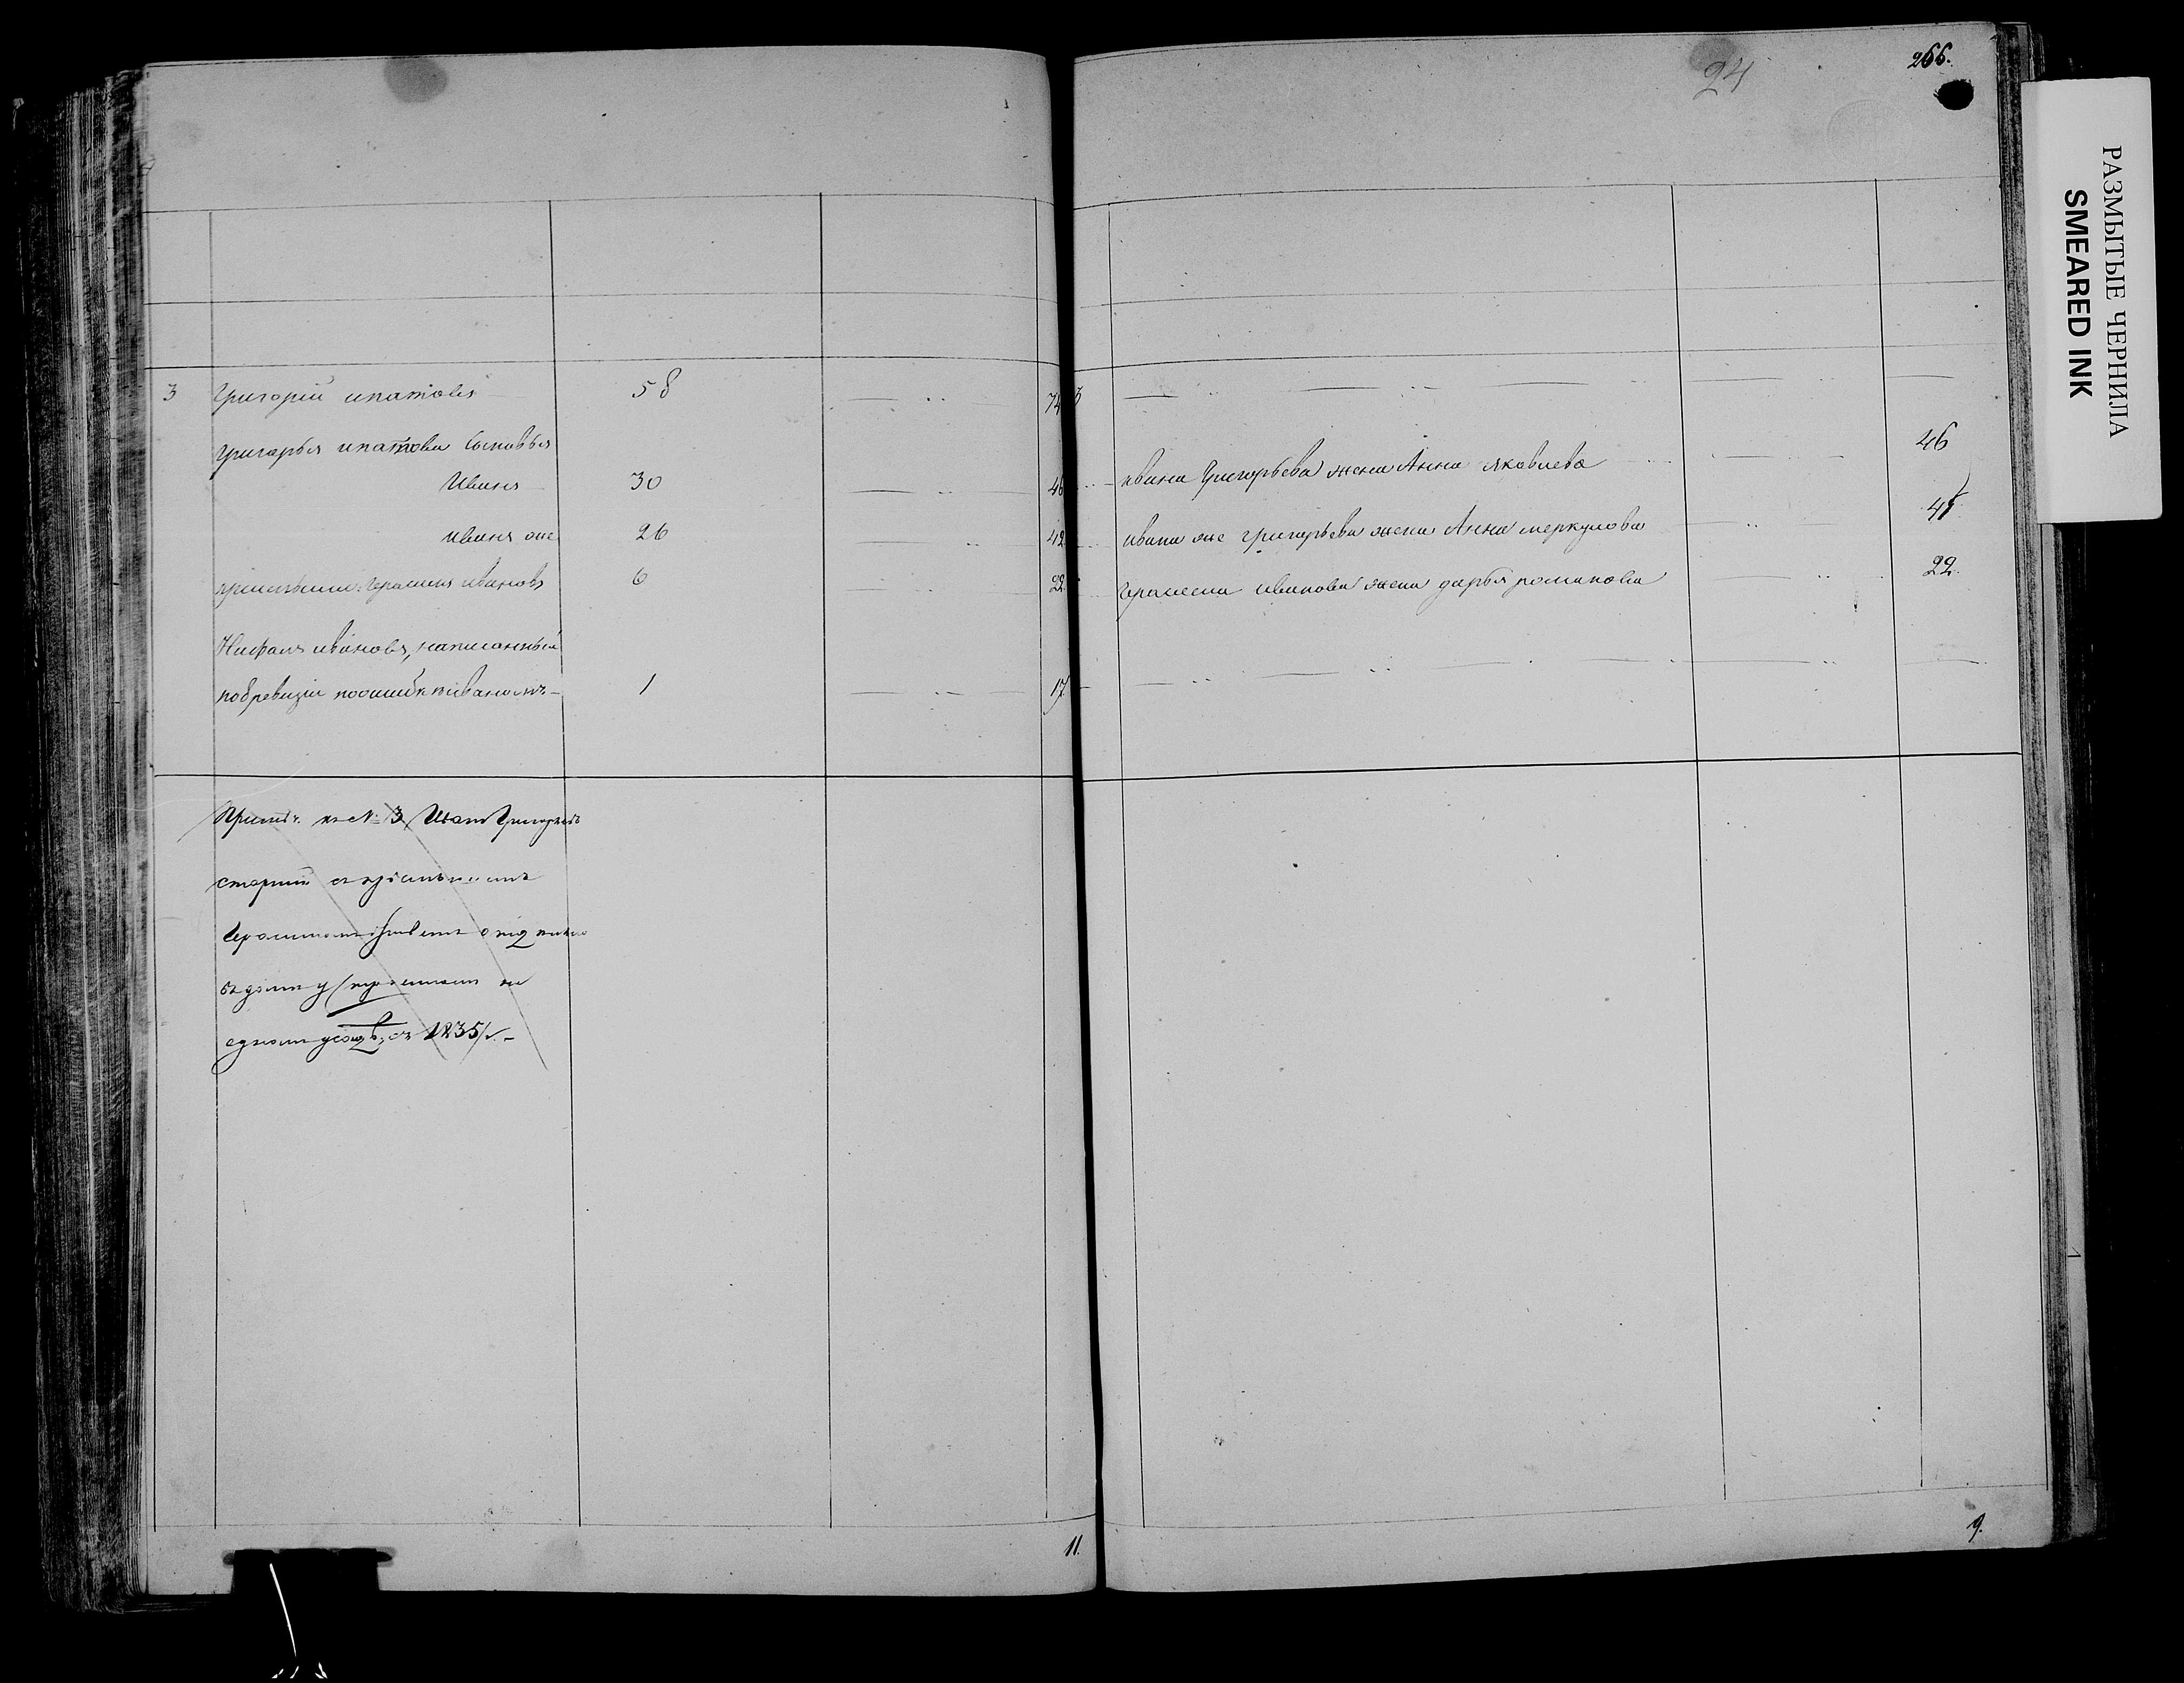 24
266.
РАЗМЫТЫЕ ЧЕРНИЛА
SMEARED INK
3 Григорій ипатовъ 58 74 3
григорья ипатова сыновья
Иванъ 30 46 ивана Григорьева жена Анна яковлева 46
иванъ же 26 42 ивана же григорьева жена Анна меркулова 45
пріимышъ: герасимъ ивановъ 6 22 Герасима иванова жена дарья романова 22.
ивановъ, написанный
по 8 ревизіи по ошибкѣ иваномъ 1 17
Примѣч. къ № 3 Иванъ Григорьевъ
старшій съ пріемышемъ
Герасимомъ живетъ
1835 г.
11. 9.